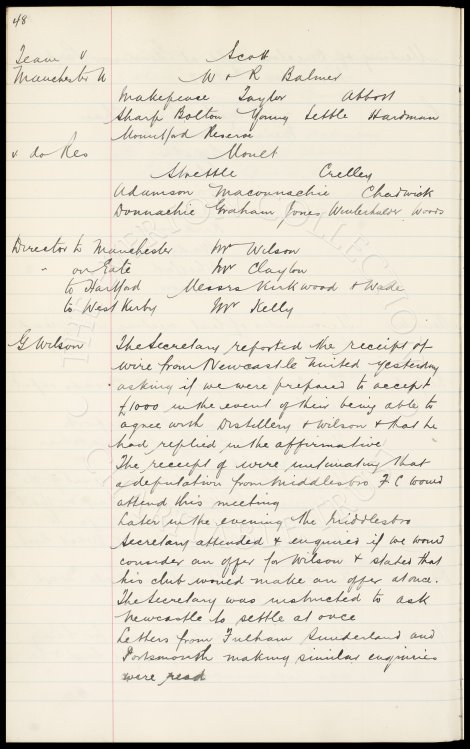 48
Team v Scott
Manchester U W & R Balmer
Makepeace Taylor Abbott
Sharp Bolton Young Settle Hardman
Mountford Reserve
v do Res Moult
Strettle Crelley
Adamson Maconnachie Chadwick
Donnachie Graham Jones Winterhalder Woods
Director to Manchester Mr Wilson
" on Gate Mr Clayton
to Hartford Messrs Kirkwood & Wade
to West Kirby Mr Kelly
G Wilson The Secretary reported the receipt of
wire from Newcastle United yesterday
asking if we were prepared to accept
£1000 in the event of their being able to
agree with Distillery & Wilson & that he
had replied in the affirmative
The receipt of wire intimating that
a deputation from Middlesbro F C would
attend this meeting
Later in the evening the Middlesbro
Secretary attended & enquired if we would
consider an offer for Wilson & stated that
his club would make an offer at once.
The Secretary was instructed to ask
Newcastle to settle at once
Letters from Fulham Sunderland and
Portsmouth making similar enquiries
were read